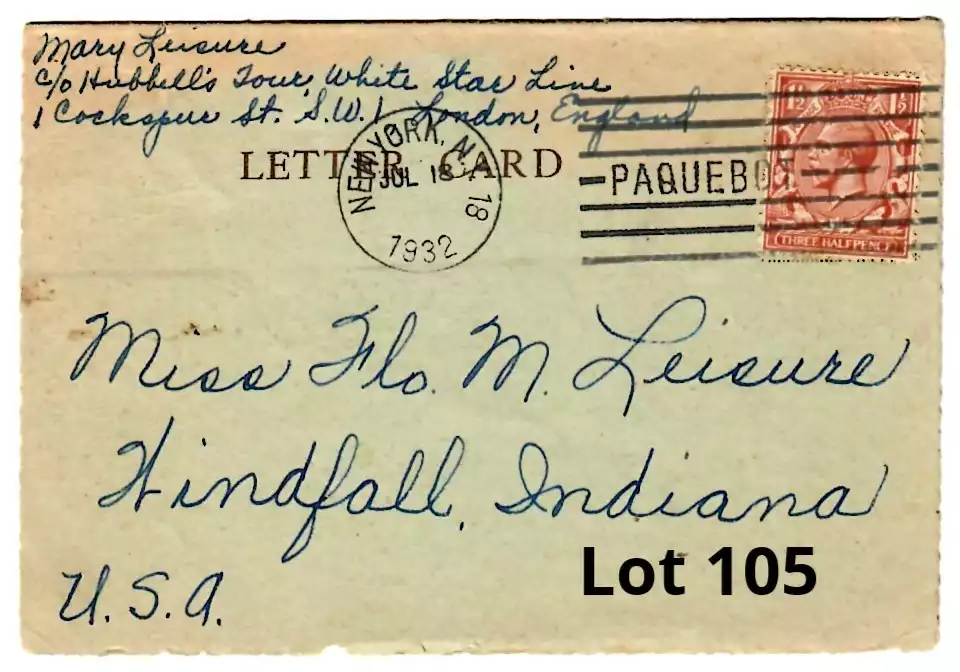 Mary Leisure
c/o Hubbell's Tour, White Star Line
1 Cockspur St. S.W.1 London, England
LETTER CARD
NEW YORK, N.Y. 18
JUL 18
1932
PAQUEBOT
1½ 1½
THREE HALFPENCE
Miss Flo. M. Leisure
Windfall, Indiana
U.S.A.
Lot 105